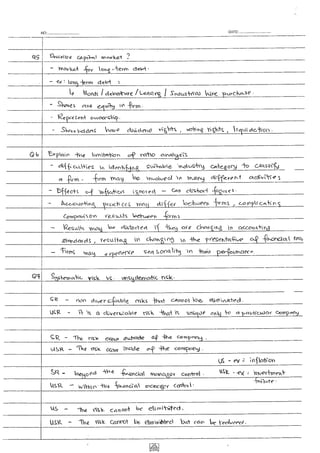 NO. DATE:
Q5 Describe capital market ?
- market for long-term debt.
- ex: long term debt :
↳ Bonds / debenture / Leasing / Industrial hire purchase.
- Shares are equity in firm.
- Represent ownership.
- Shareholders have dividend rights, voting rights, liquidation.
Q6 Explain the limitation of ratio analysis
- difficulties in identifying suitable industry category to classify
a firm. firm may be involved in many different activities
- Effects of inflation ignored - can distort figures.
- Accounting practices may differ between firms, complicating
comparison results between firms
- Results may be distorted if they are changing in accounting
standards, resulting in changing in the presentation of financial
- Firms may experience seasonality in their performance
Q7 Systematic risk vs. unsystematic risk.
SR - non diversifiable risks that cannot be eliminated.
USR - It is a diversifiable risk that is unique only to a particular company
SR - The risk outside of the company.
USR - The risk inside of the company.
US - ex: inflation
SR - beyond the financial manager control. USR - ex: investment
failure.
USR - within the financial manager control.
US - The risk cannot be eliminated.
USR - The risk cannot be eliminated but can be reduced.